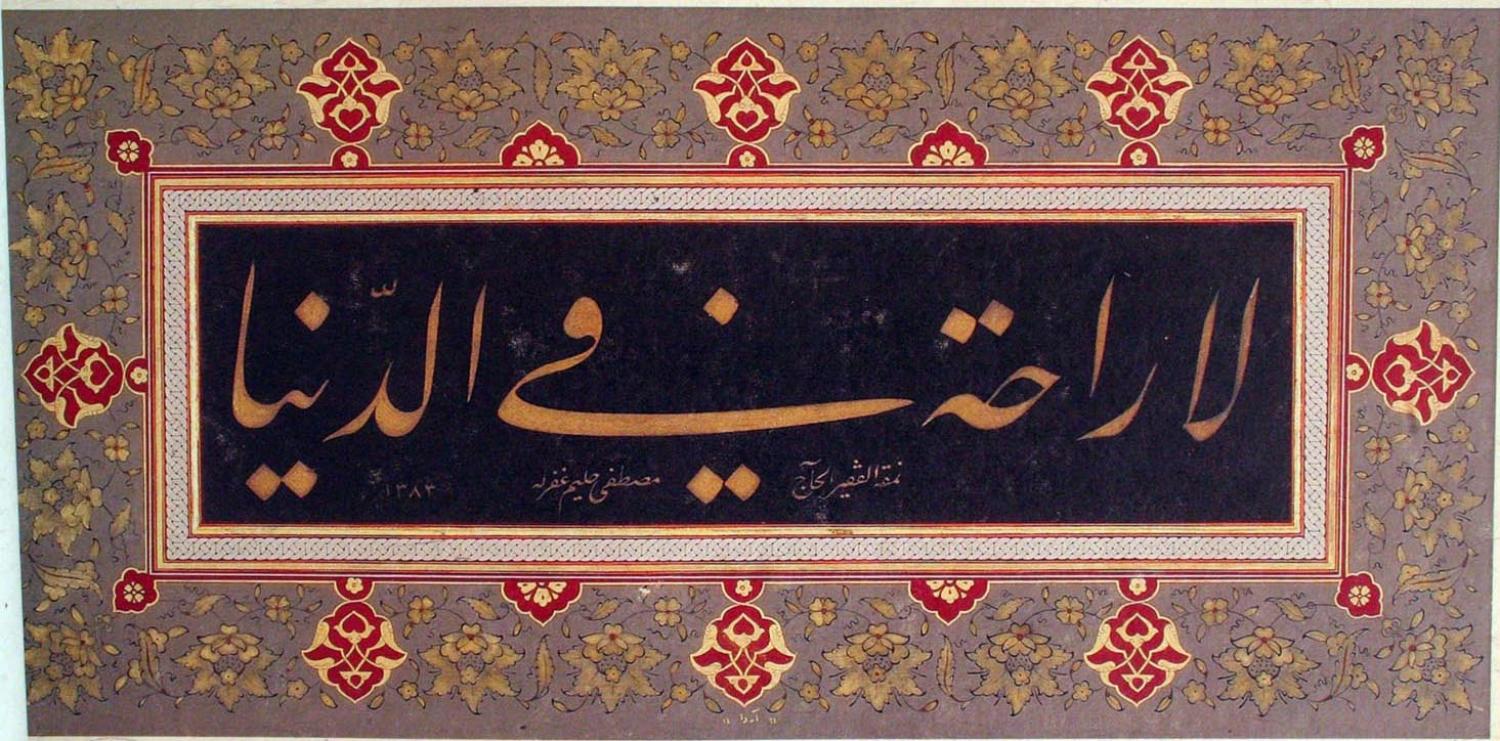 لا راحة في الدّنيا
نمقه الفقير الحاج مصطفى حليم غفرله ١٣٨٣